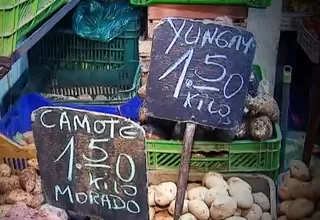 YUNGAY
1.50
KILO
CAMOTE
1.50
KILO
MORADO